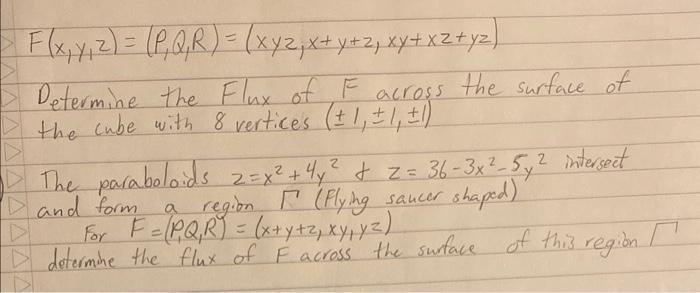 F(x,y,z) = (P,Q,R) = (xyz, x+y+z, xy+xz+yz)
Determine the Flux of F across the surface of
the cube with 8 vertices (±1, ±1, ±1)
The paraboloids z=x²+4y² & z=36-3x²-5y² intersect
and form a region Γ (Flying saucer shaped)
For F=(P,Q,R)=(x+y+z, xy, yz)
determine the flux of F across the surface of this region Γ